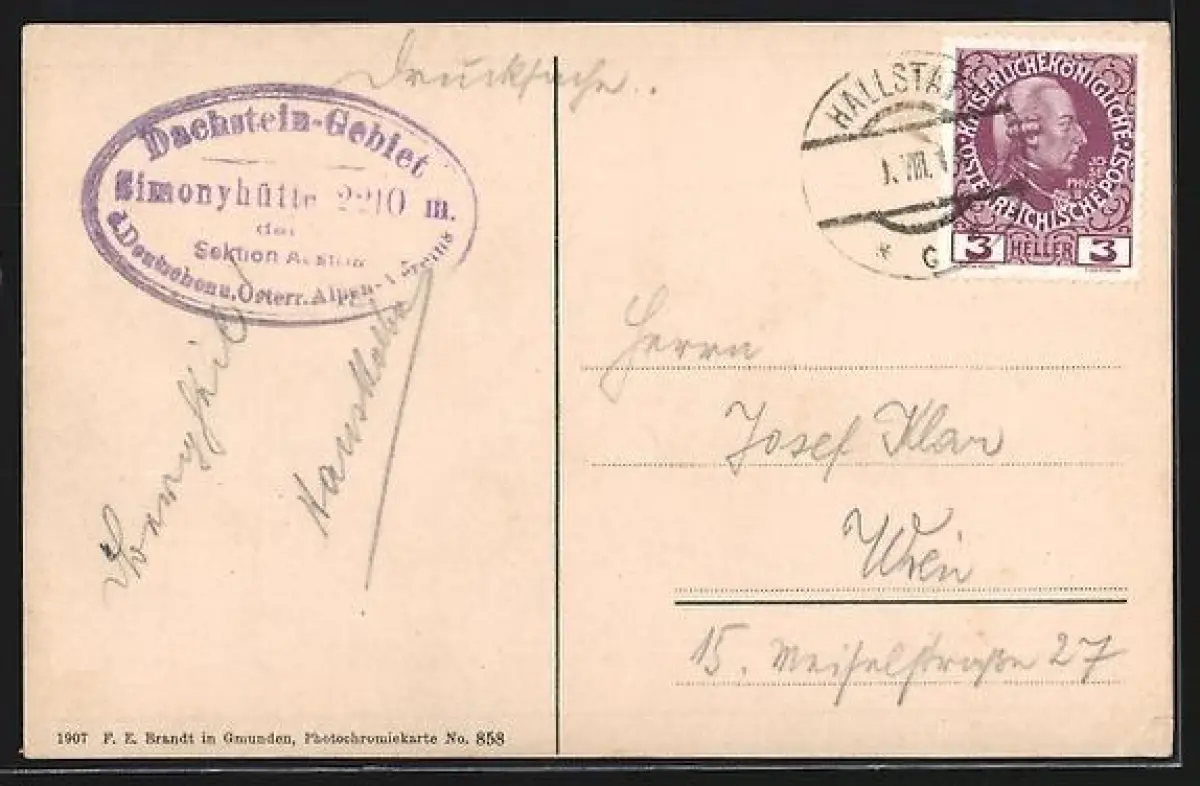 Drucksache..
Dachstein-Gebiet
Simonyhütte 2210 m.
der
Sektion Austria
d. Deutschen u. Österr. Alpen-Vereins
HALLSTATT
1. VIII.
* G
ÖSTERREICHISCHE POST · KAISERLICHE KÖNIGLICHE
JO
SE
PHVS
II
3 HELLER 3
Herrn
Josef Klar
Wien
15. Meiselstraße 27
1907 F. E. Brandt in Gmunden, Photochromiekarte No. 858